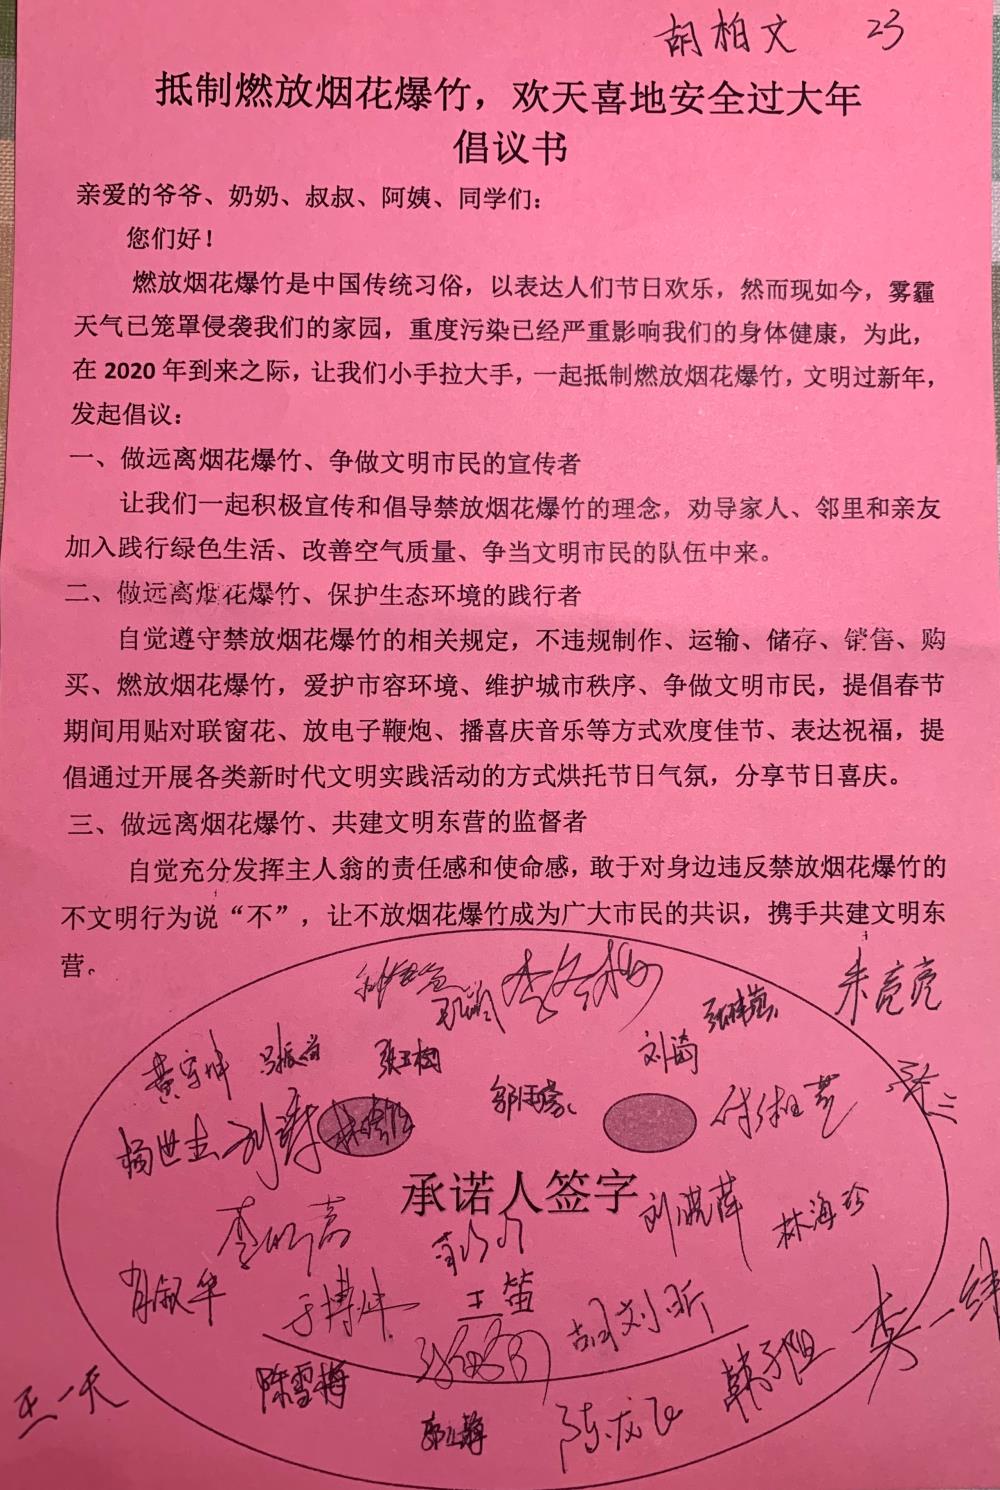 胡柏文 23
抵制燃放烟花爆竹，欢天喜地安全过大年
倡议书
亲爱的爷爷、奶奶、叔叔、阿姨、同学们：
您们好！
燃放烟花爆竹是中国传统习俗，以表达人们节日欢乐，然而现如今，雾霾
天气已笼罩侵袭我们的家园，重度污染已经严重影响我们的身体健康，为此，
在 2020 年到来之际，让我们小手拉大手，一起抵制燃放烟花爆竹，文明过新年，
发起倡议：
一、做远离烟花爆竹、争做文明市民的宣传者
让我们一起积极宣传和倡导禁放烟花爆竹的理念，劝导家人、邻里和亲友
加入践行绿色生活、改善空气质量、争当文明市民的队伍中来。
二、做远离烟花爆竹、保护生态环境的践行者
自觉遵守禁放烟花爆竹的相关规定，不违规制作、运输、储存、销售、购
买、燃放烟花爆竹，爱护市容环境、维护城市秩序、争做文明市民，提倡春节
期间用贴对联窗花、放电子鞭炮、播喜庆音乐等方式欢度佳节、表达祝福，提
倡通过开展各类新时代文明实践活动的方式烘托节日气氛，分享节日喜庆。
三、做远离烟花爆竹、共建文明东营的监督者
自觉充分发挥主人翁的责任感和使命感，敢于对身边违反禁放烟花爆竹的
不文明行为说“不”，让不放烟花爆竹成为广大市民的共识，携手共建文明东
营。
李冬梅
朱亮亮
黄守坤 吕振岗 张玉梅 刘茵
杨世杰
承诺人签字
刘晓萍 林海珍
肖叙华 于博洋 王萤 胡刘昕
陈雪梅 韩子阳 李一纬
王一天 陈龙飞